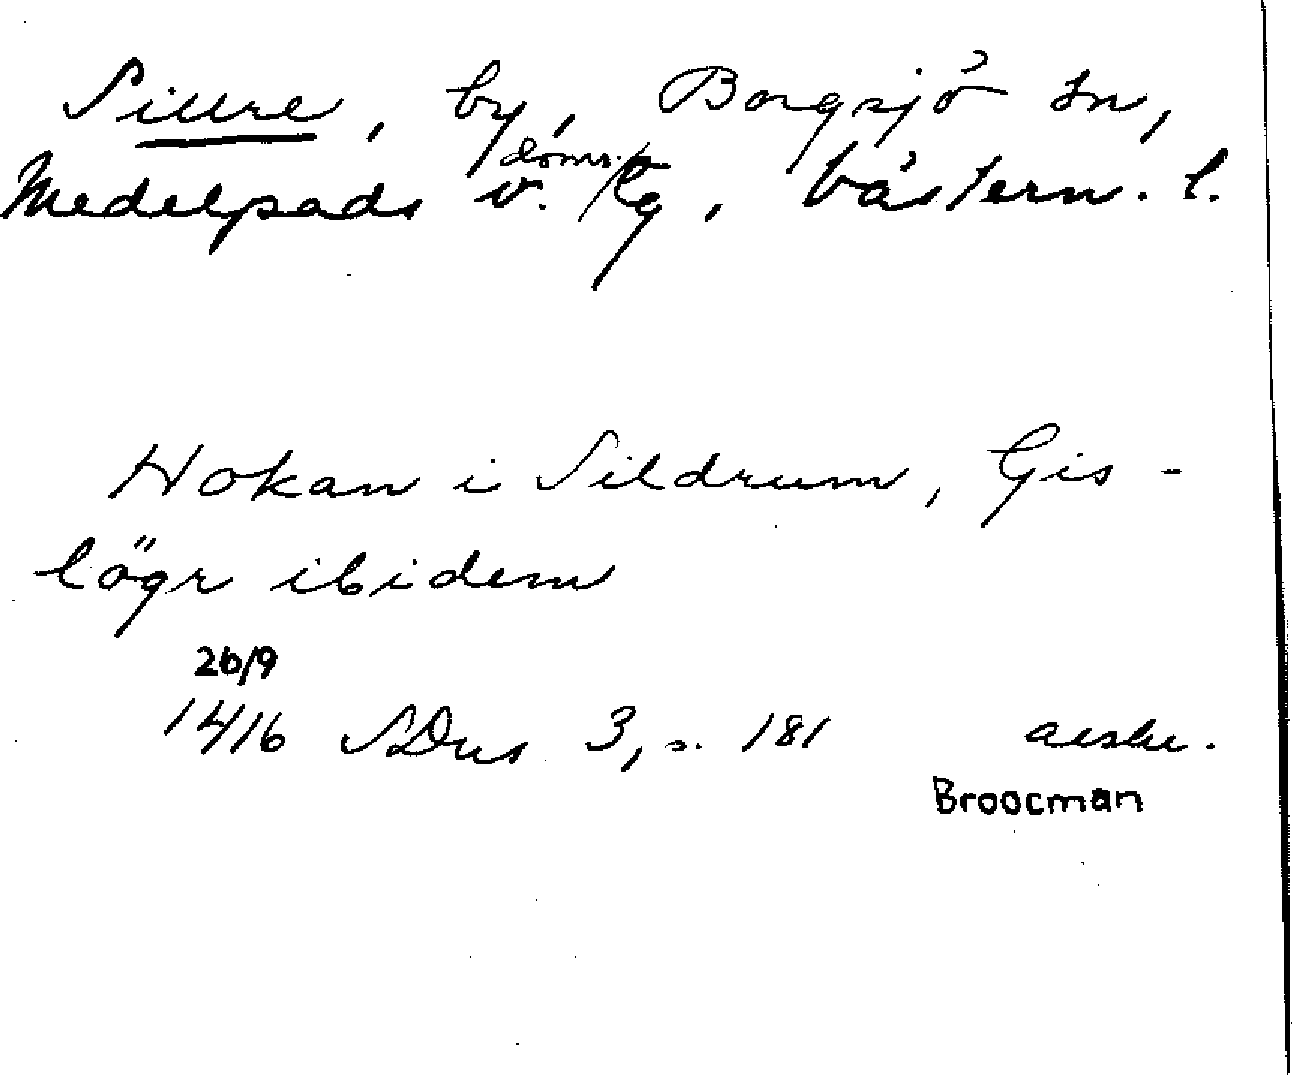 Sillre, by, Borgsjö sn,
Medelpads v. doms. tg, Västern. l.
Hokan i Sildrum, Gis-
lögr ibidem
26/9
1416 SDns 3, s. 181
Broocman